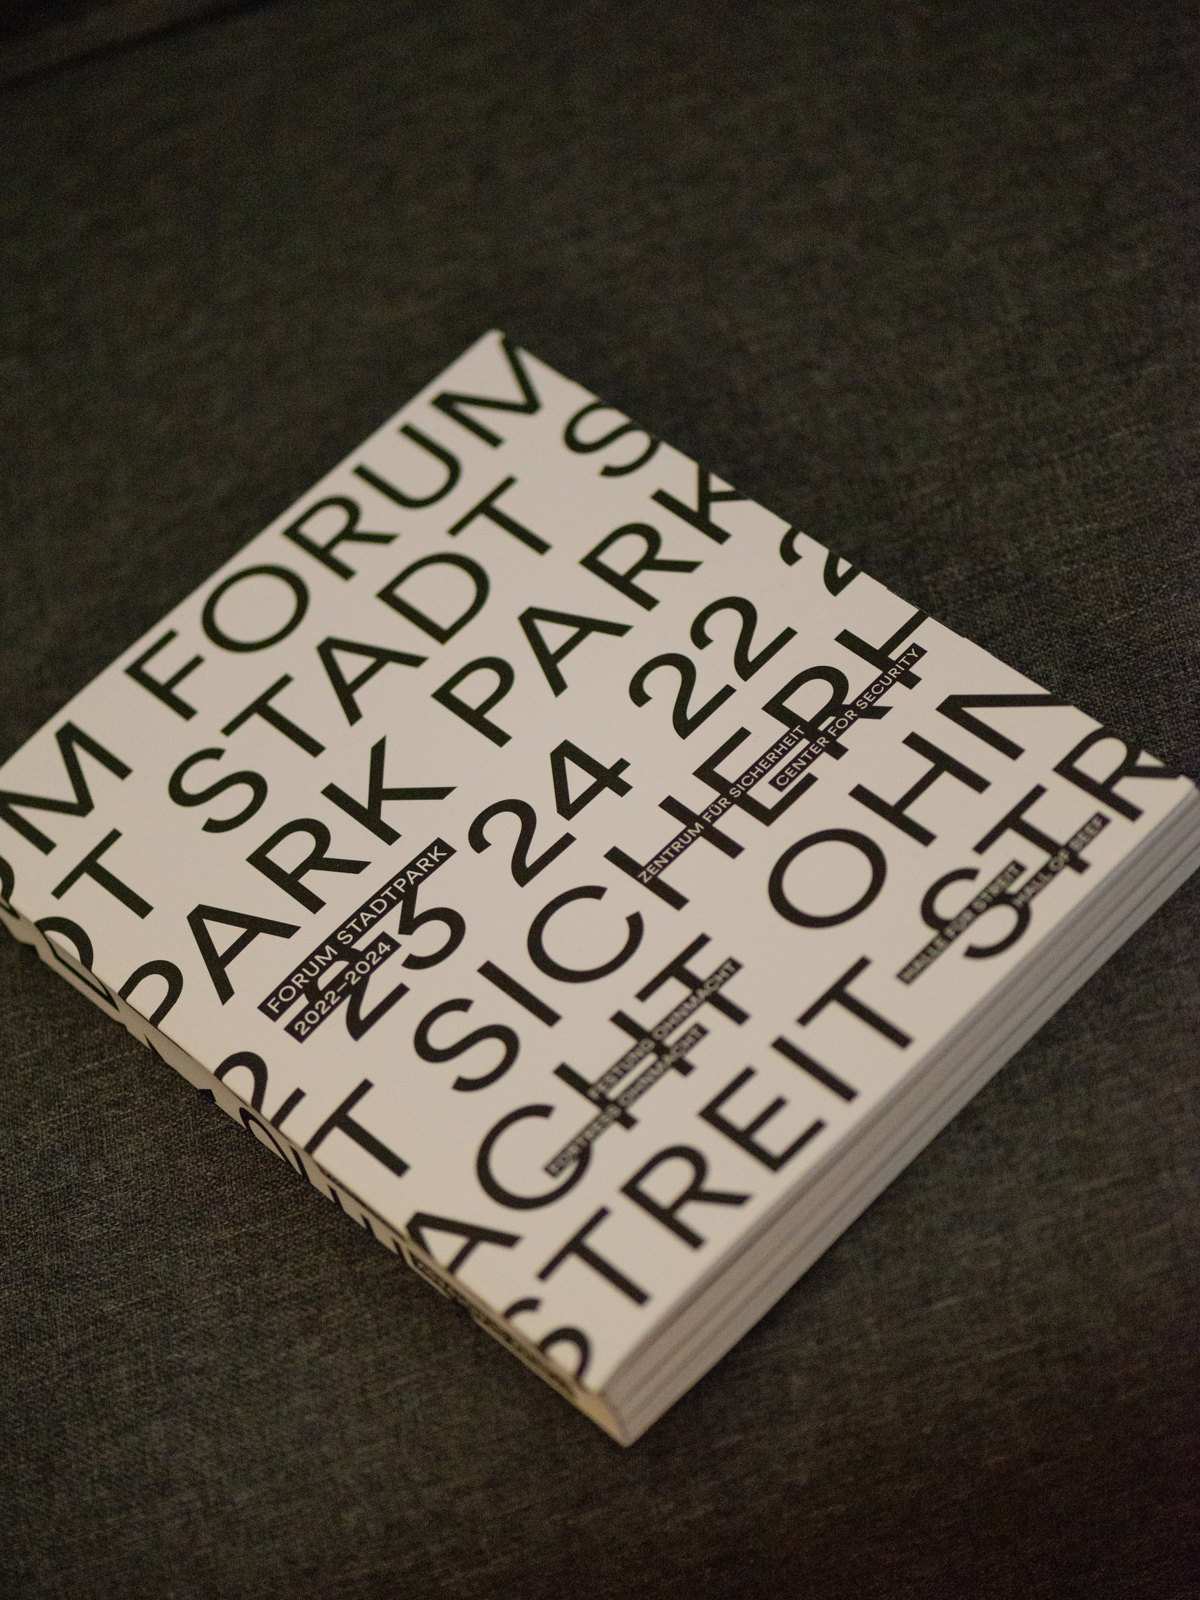 FORUM
STADT S
PARK PARK
23 24 22 2
T SICHERH
ACHT OHN
STREIT STR
FORUM STADTPARK
2022–2024
ZENTRUM FÜR SICHERHEIT
CENTER FOR SECURITY
FESTUNG OHNMACHT
FORTRESS OHNMACHT
HALLE FÜR STREIT
HALL OF BEEF